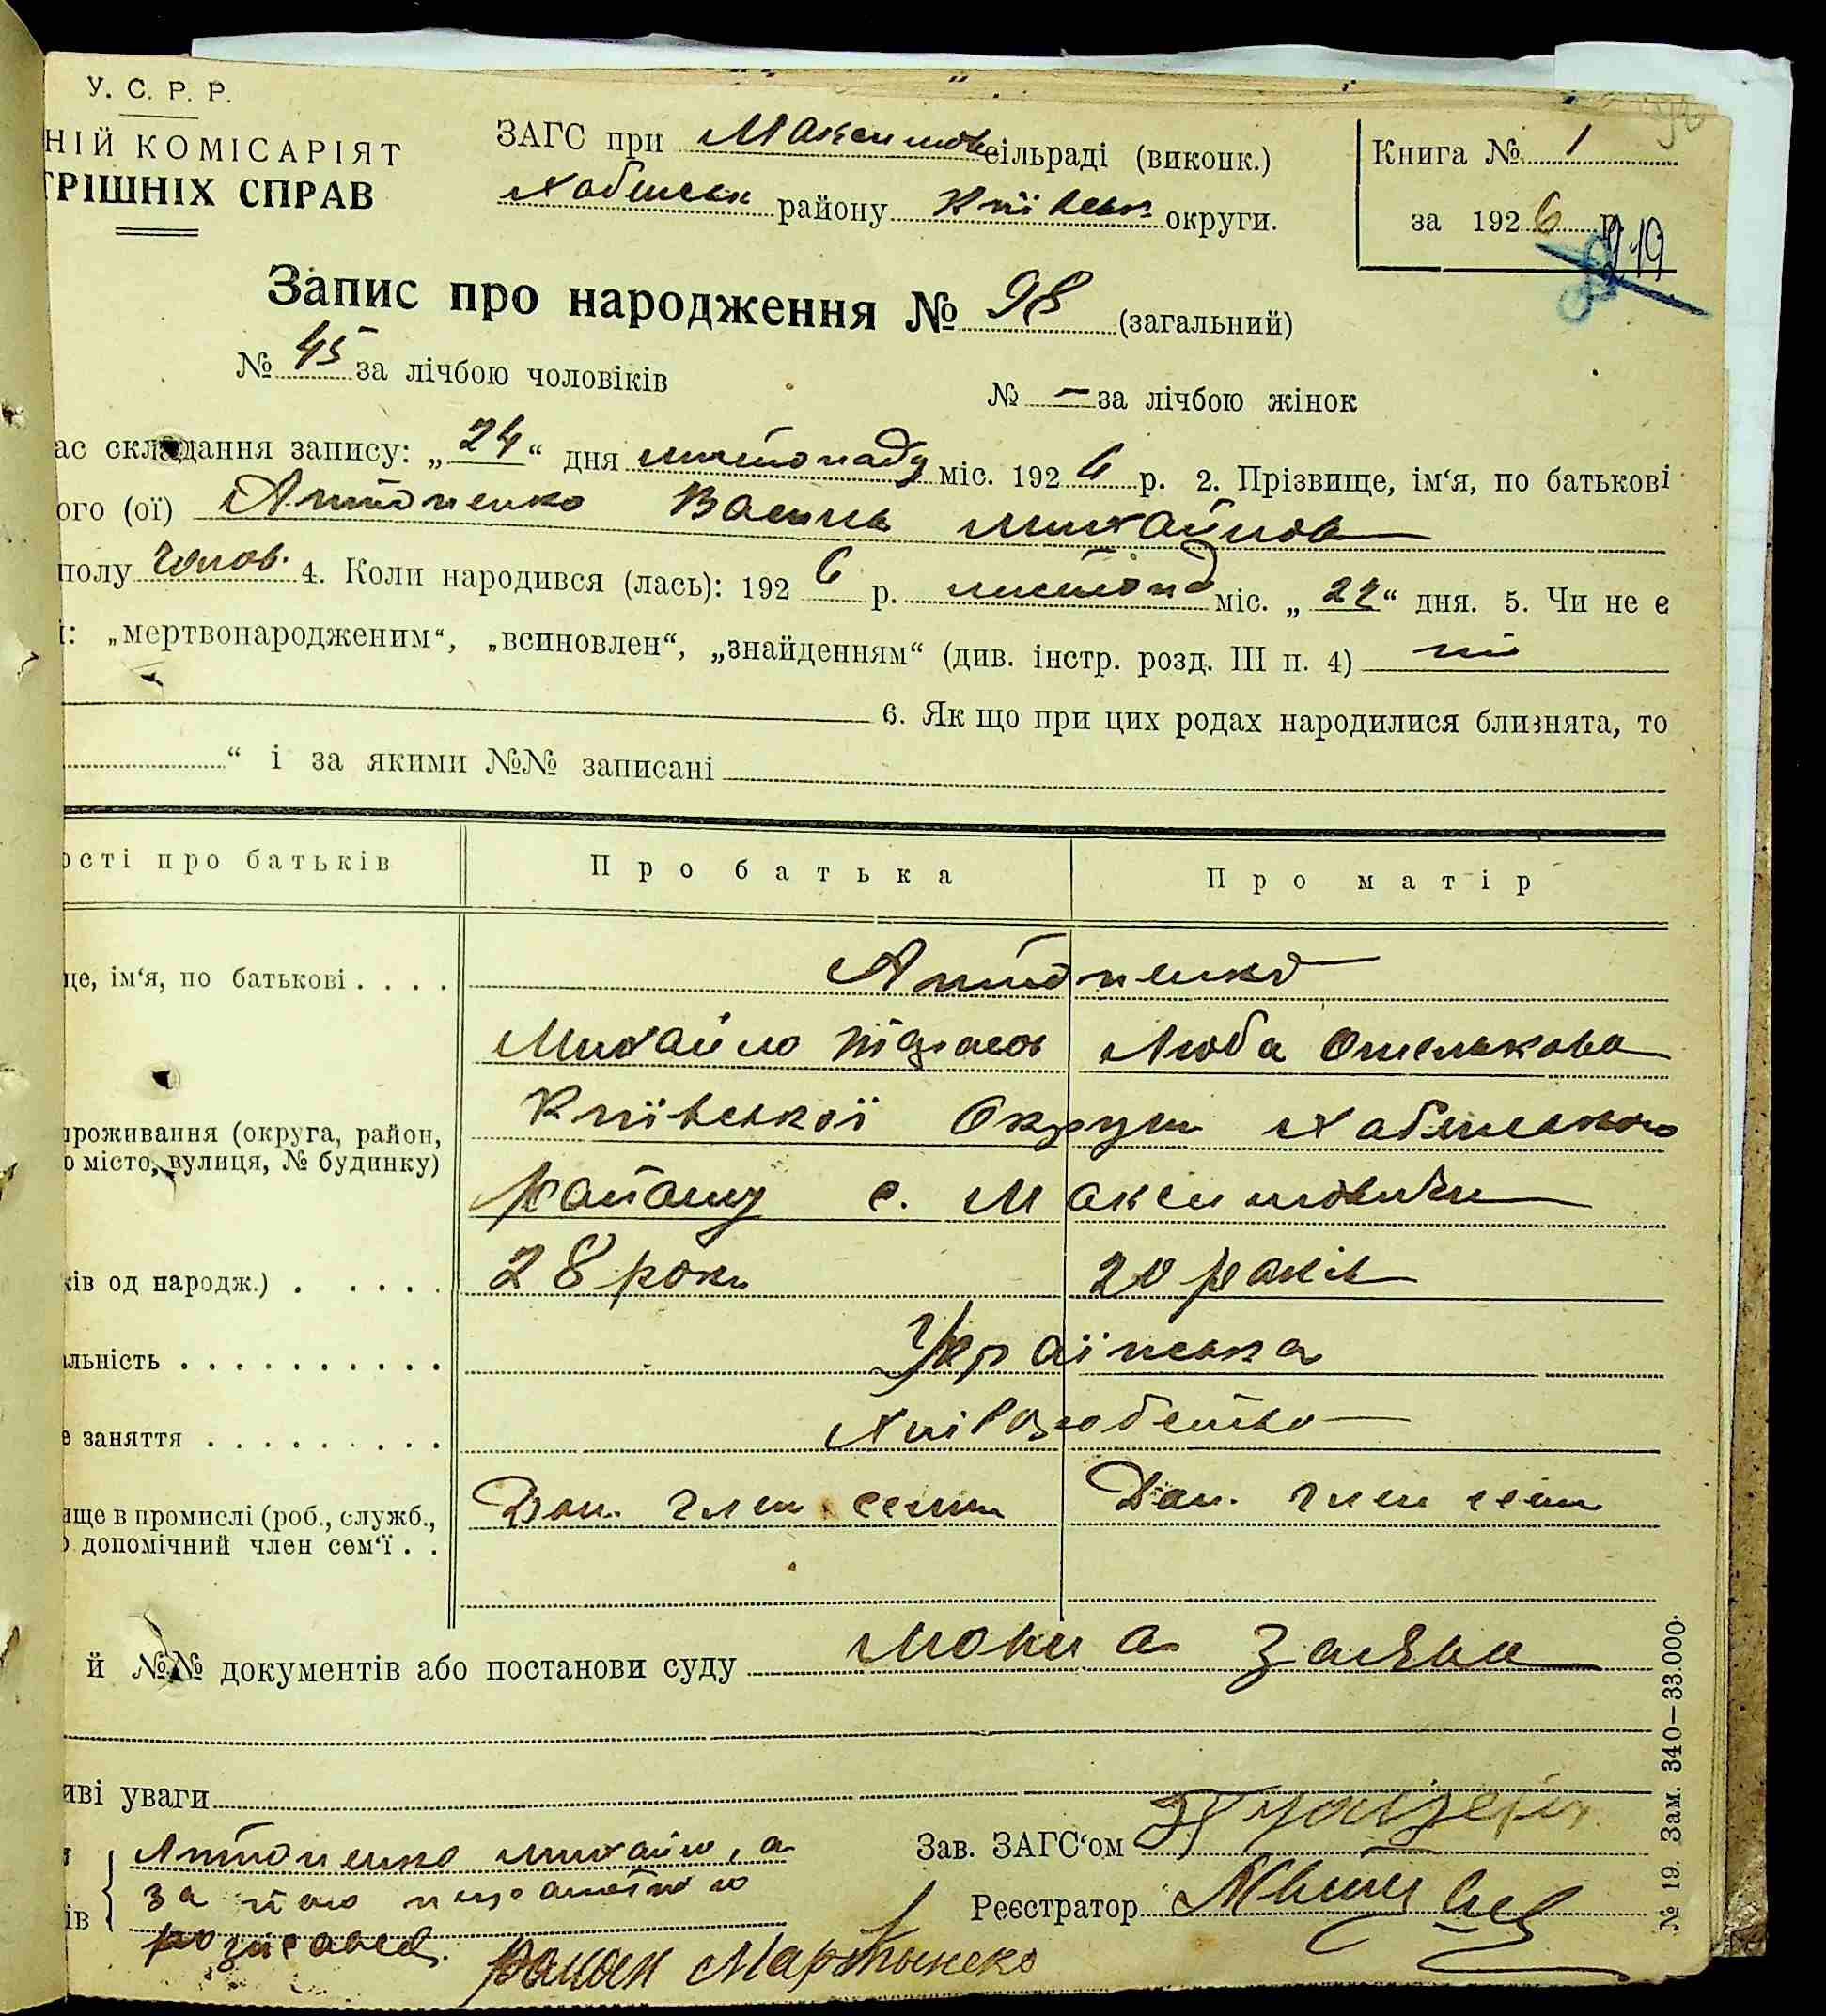 У. С. Р. Р.
НІЙ КОМІСАРІЯТ
ТРІШНІХ СПРАВ
ЗАГС при Максимов сільраді (виконк.)
Хабенськ району Київськ округи.
Книга № 1
за 1926 р.
219
Запис про народження № 98 (загальний)
№ 45 за лічбою чоловіків № — за лічбою жінок
ас складання запису: „24“ дня листопаду міс. 1926 р. 2. Прізвище, ім‘я, по батькові
ого (ої) Антоненко Василь Михайлов
полу чолов. 4. Коли народився (лась): 1926 р. листопад міс. „22“ дня. 5. Чи не є
і: „мертвонародженим“, „всиновлен“, „знайденням“ (див. інстр. розд. III п. 4) ні
6. Як що при цих родах народилися близнята, то
“ і за якими №№ записані
ості про батьків Про батька Про матір
це, ім‘я, по батькові . . . . Антоненко
Михайло Тарасов Люба Омелькова
проживання (округа, район,
о місто, вулиця, № будинку)
Київської Округи Хабенського
Району с. Максимовичи
ків од народж.) . . . . . 28 роки 20 років
альність . . . . . . . . . . . Українська
е заняття . . . . . . . . . . Хліборобство
ище в промислі (роб., служб.,
о допомічний член сем‘ї . .
Доп. член семи Доп. член семи
й №№ документів або постанови суду мовна заява
иві уваги
Антоненко Михайло, а
за його неграмотного
розписався. Роман Мартыненко
Зав. ЗАГС‘ом
Реєстратор
№ 19. Зам. 340—33.000.